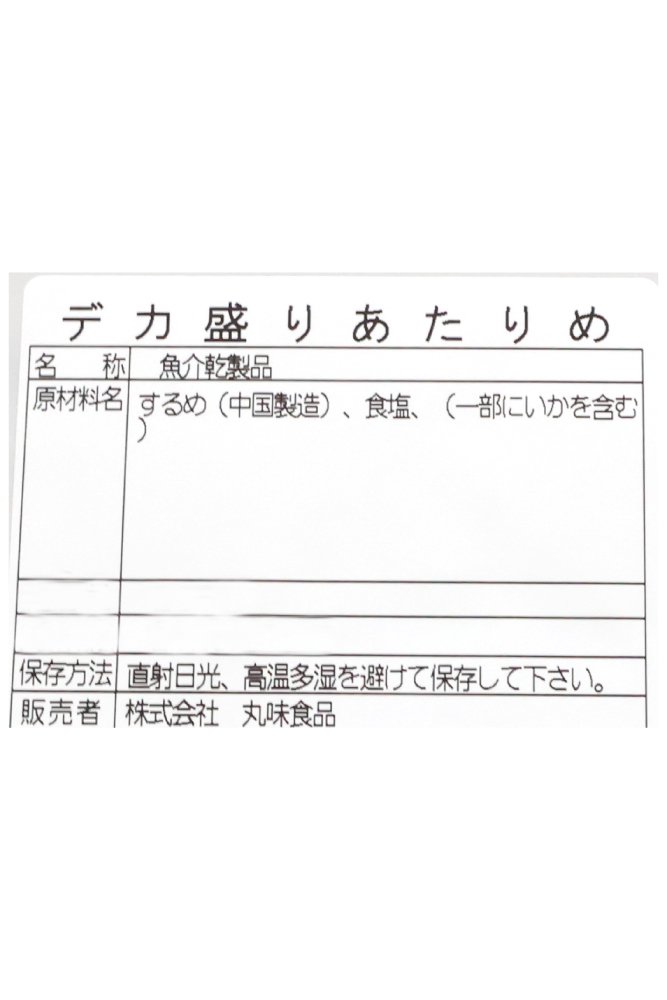 デカ盛りあたりめ
名　称　魚介乾製品
原材料名　するめ（中国製造）、食塩、（一部にいかを含む
）
保存方法　直射日光、高温多湿を避けて保存して下さい。
販売者　株式会社　丸味食品